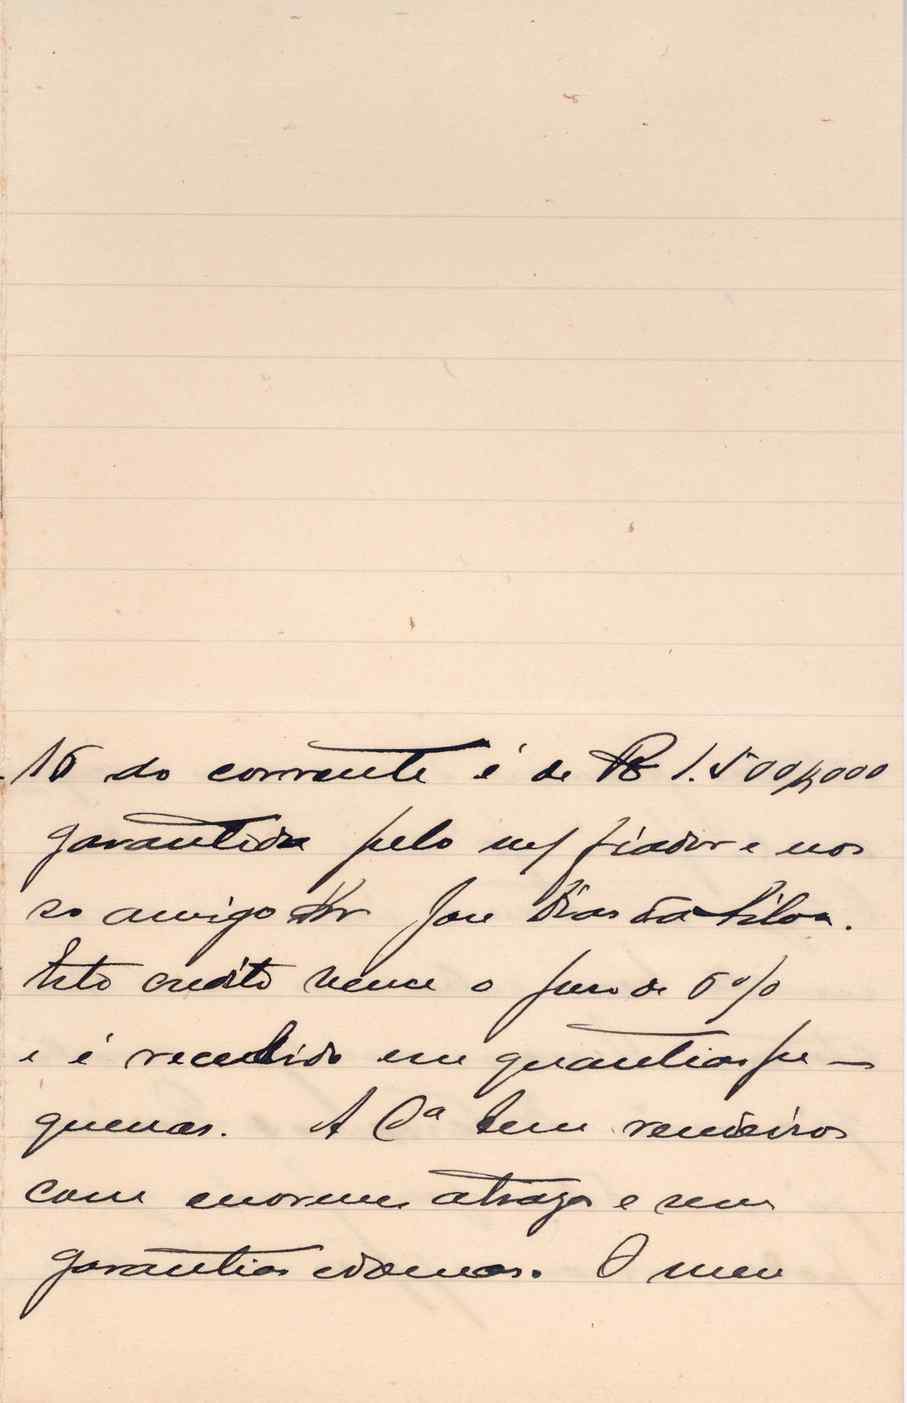 15 do corrente é de Rs 1.500$000
garantida pelo m/ fiador e nos
so amigo Dr José Dias da Silva.
Este credito vence o juro de 6%
e é recebido em quantias pe-
quenas. A Cª tem rendeiros
com enorme atrazo e sem
garantias idoneas. O meu